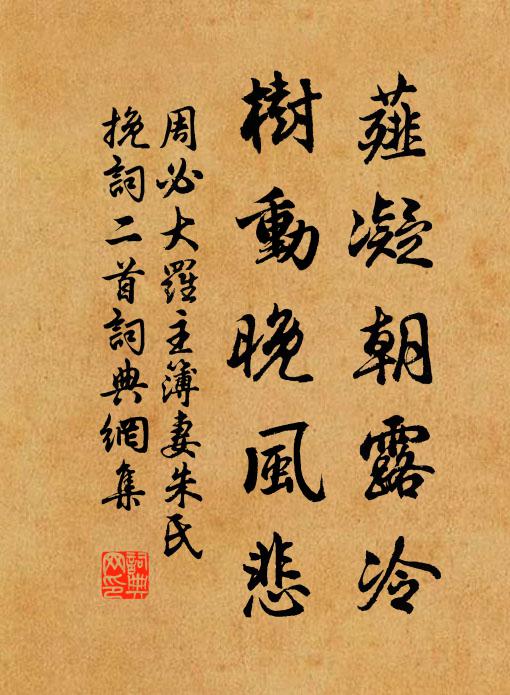 薤凝朝露冷
樹動晚風悲
周必大羅主簿妻朱氏
挽詞二首詞典網集
詞典
网印